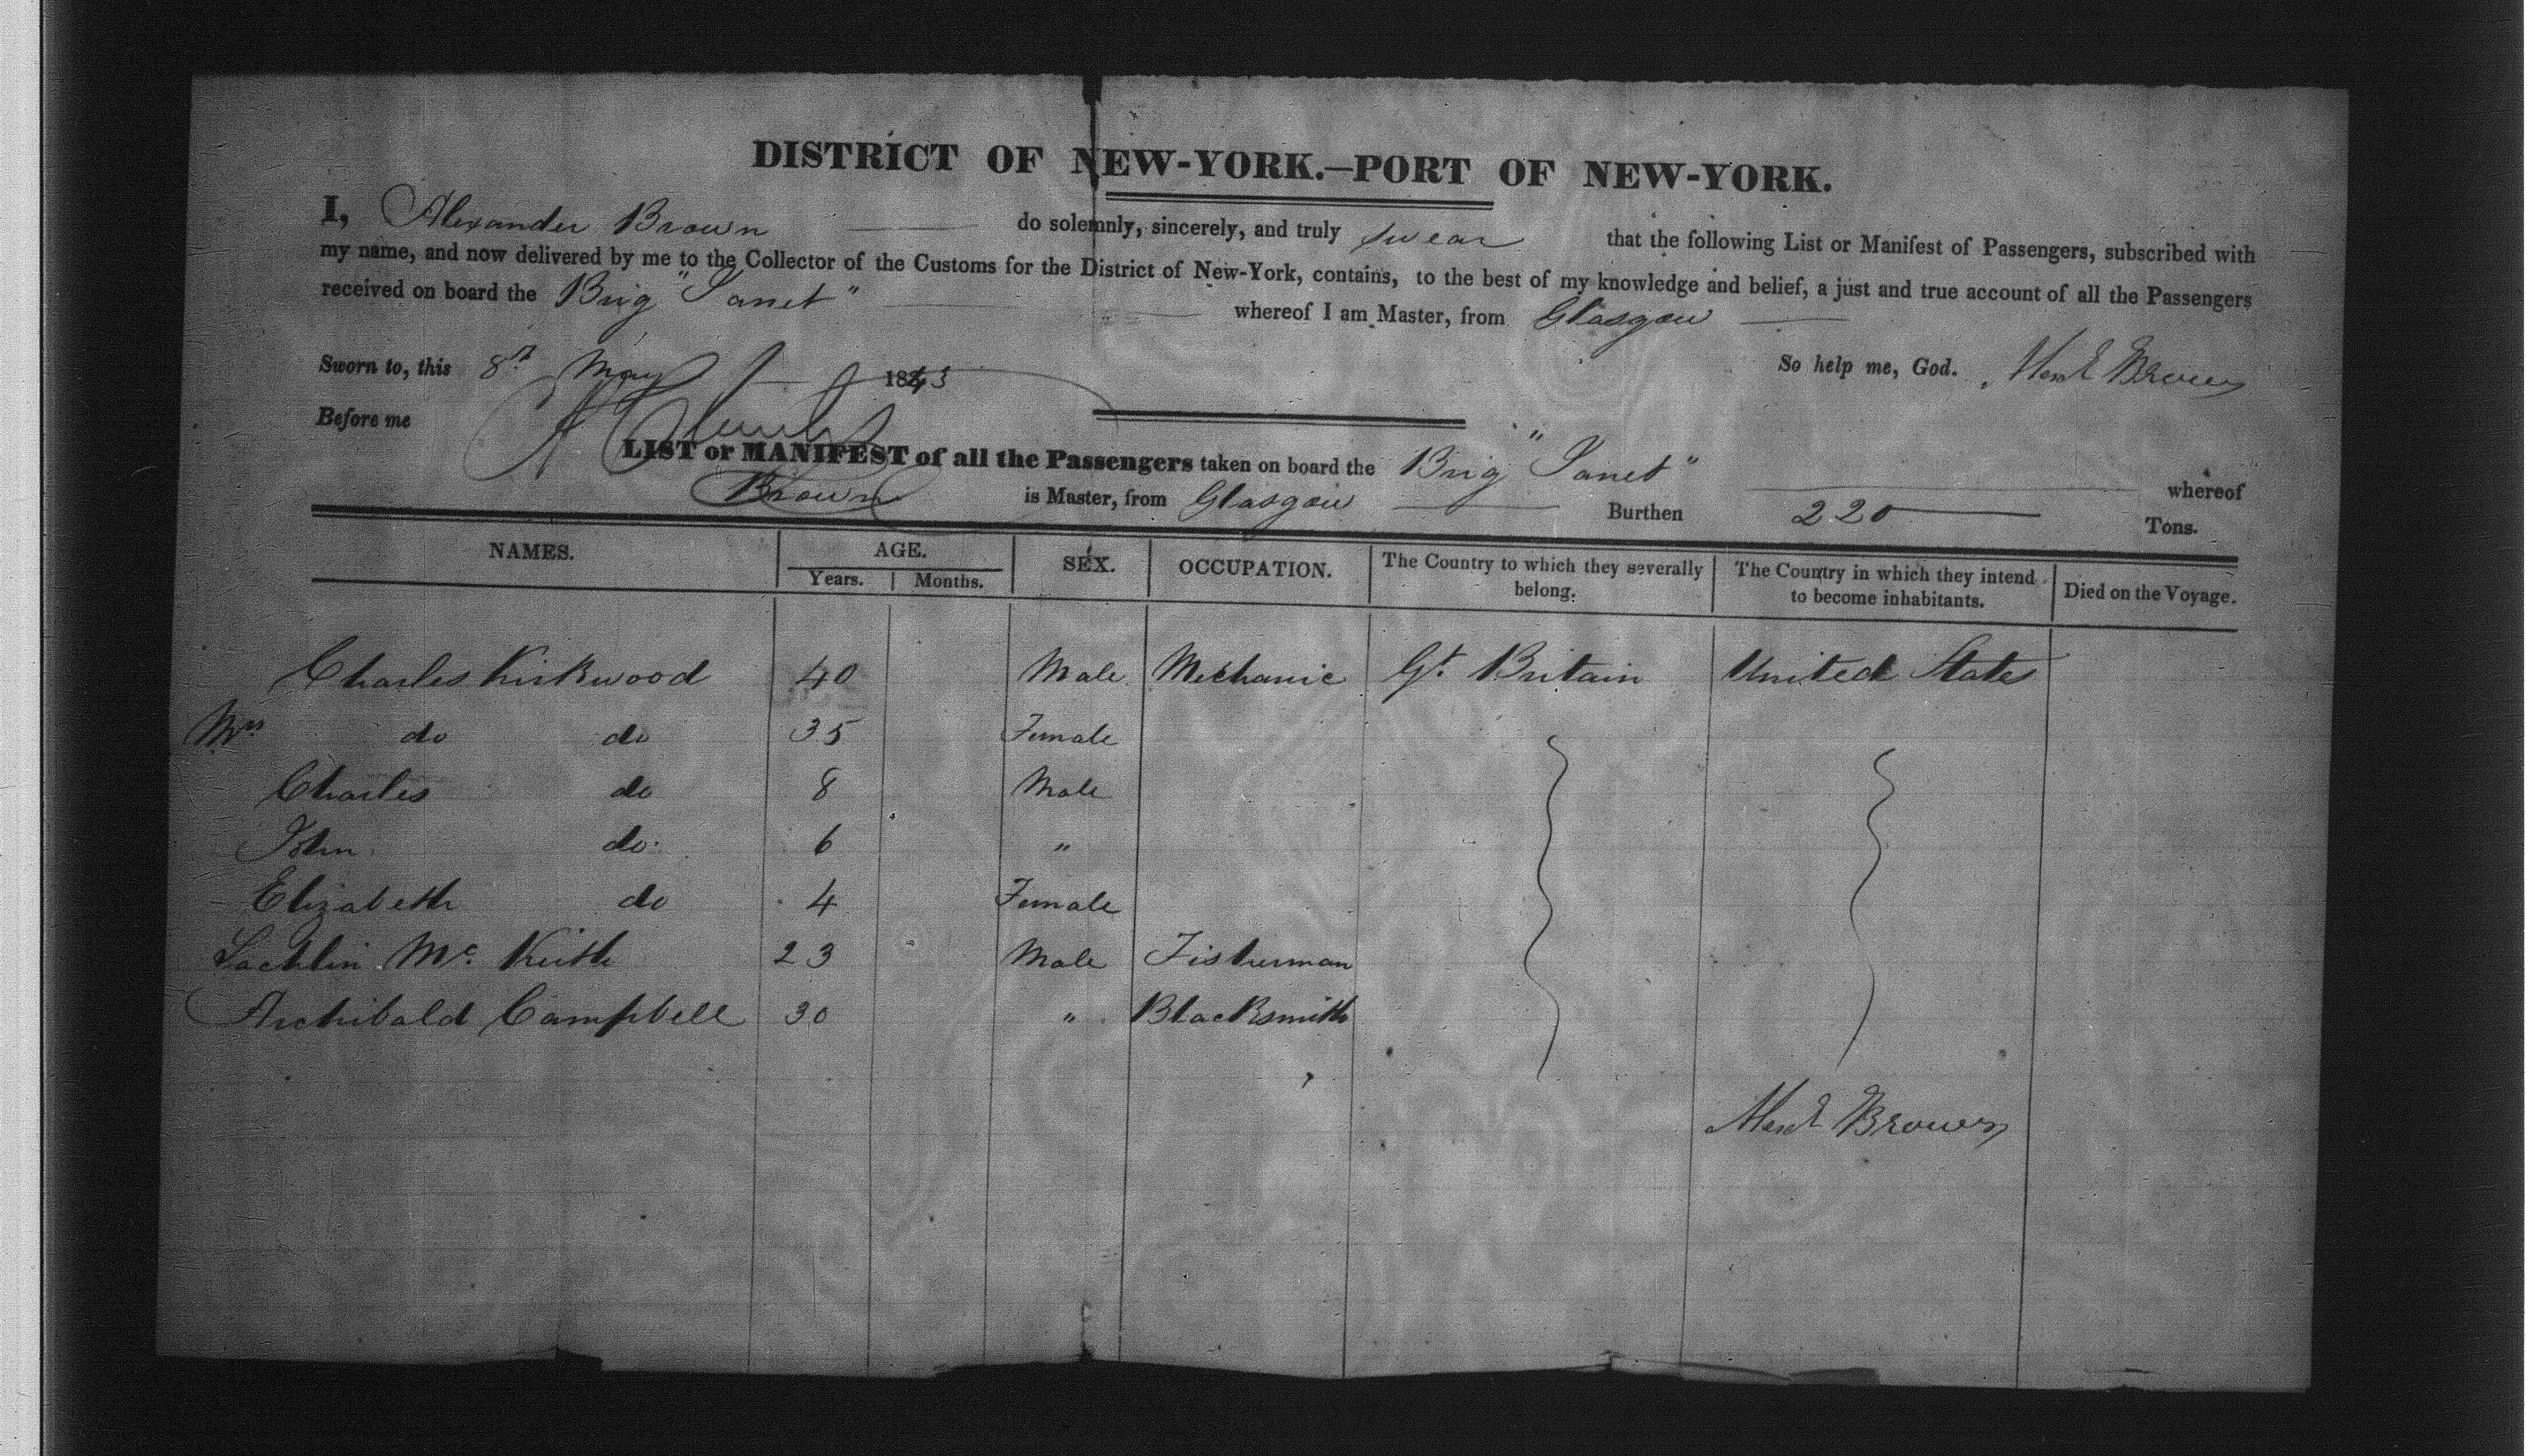 DISTRICT OF NEW-YORK.—PORT OF NEW-YORK.
I, Alexander Brown do solemnly, sincerely, and truly swear that the following List or Manifest of Passengers, subscribed with
my name, and now delivered by me to the Collector of the Customs for the District of New-York, contains, to the best of my knowledge and belief, a just and true account of all the Passengers
received on board the Brig "Janet" whereof I am Master, from Glasgow
Sworn to, this 8th May 1843 So help me, God. Alexr Brown
Before me
LIST or MANIFEST of all the Passengers taken on board the Brig "Janet" whereof
Brown is Master, from Glasgow Burthen 220 Tons.
NAMES. AGE. SEX. OCCUPATION. The Country to which they severally belong. The Country in which they intend to become inhabitants. Died on the Voyage.
Years. Months.
Charles Kirkwood 40 Male Mechanic Gt. Britain United States
Mrs do do 35 Female
Charles do 8 Male
John do. 6 "
Elizabeth do 4 Female
Lachlin Mc Keith 23 Male Fisherman
Archibald Campbell 30 " Blacksmith
Alexr Brown